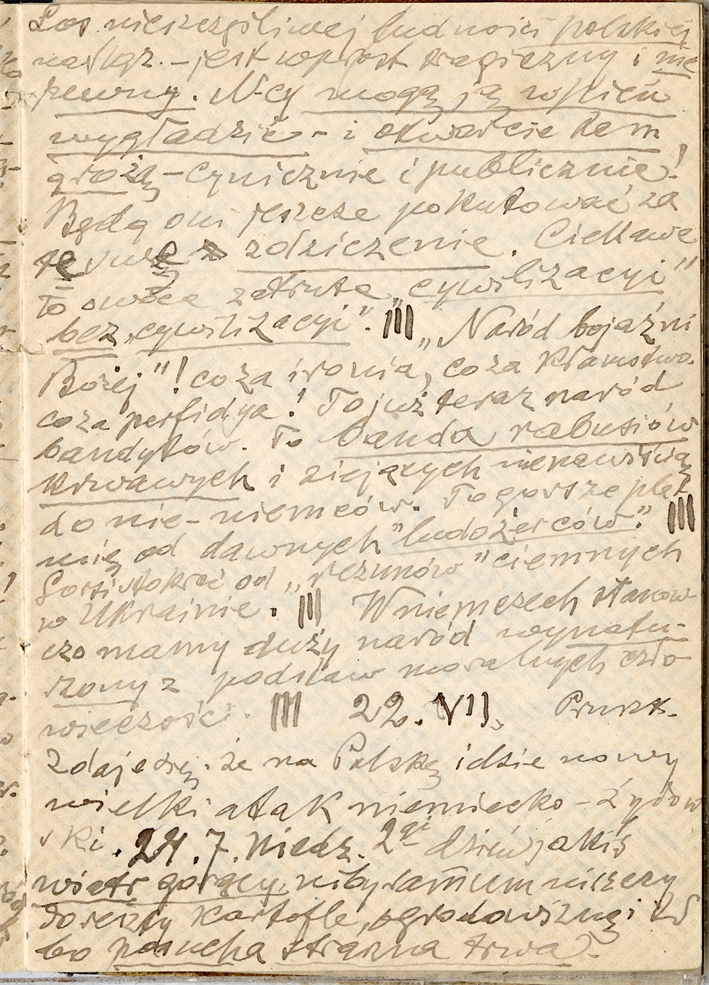 Los nieszczęśliwej ludności polskiej
na Śląz. – jest wprost tragiczny i nie
pewny. N-cy mogą ją w pień
wygładzić – i otwarcie tem
grożą – cynicznie i publicznie!
Będą oni jeszcze pokutować za
zdziczenie. Ciekawe
to owoce zatrute „cywilizacyi"
bez „cywilizacyi". III „Naród bojaźni
Bożej"! co za ironia, co za kłamstwo.
co za perfidya! To już teraz naród
bandytów. To banda rabusiów
krwawych i ziejących nienawiścią
do nie-niemców. To gorsze ple-
mię od dawnych "ludożerców". III
Gorsi od „rezunów" ciemnych
w Ukrainie. III W niemczech stanow
czo mamy duży naród wynatu-
rzony z podstaw moralnych czło
wieczości. III 22. VII. Prusz.
Zdaje się, że na Polskę idzie nowy
wielki atak niemiecko – żydow
ski. 24. 7. Niedz. dziś jakiś
wiatr gorący, niby samum niszczy
do reszty kartofle, ogrodowiznę i
bo posucha straszna trwa.